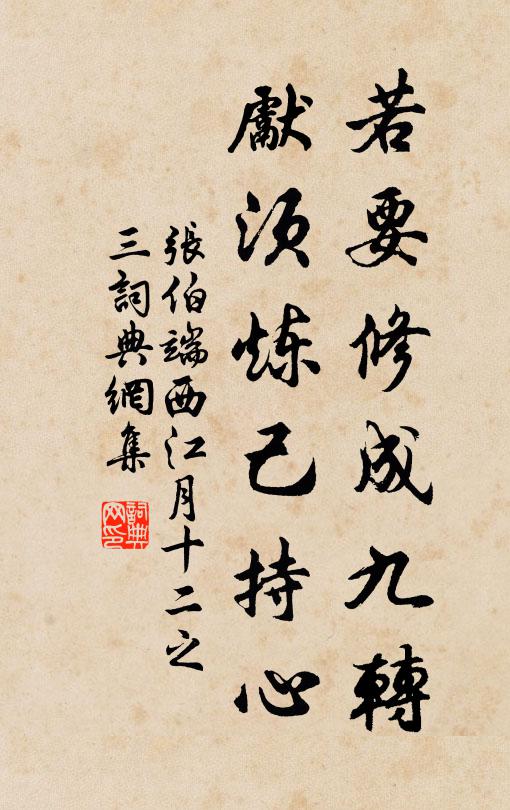 若要修成九轉
獻須炼己持心
張伯端西江月十二之
三詞典網集
詞典
网印